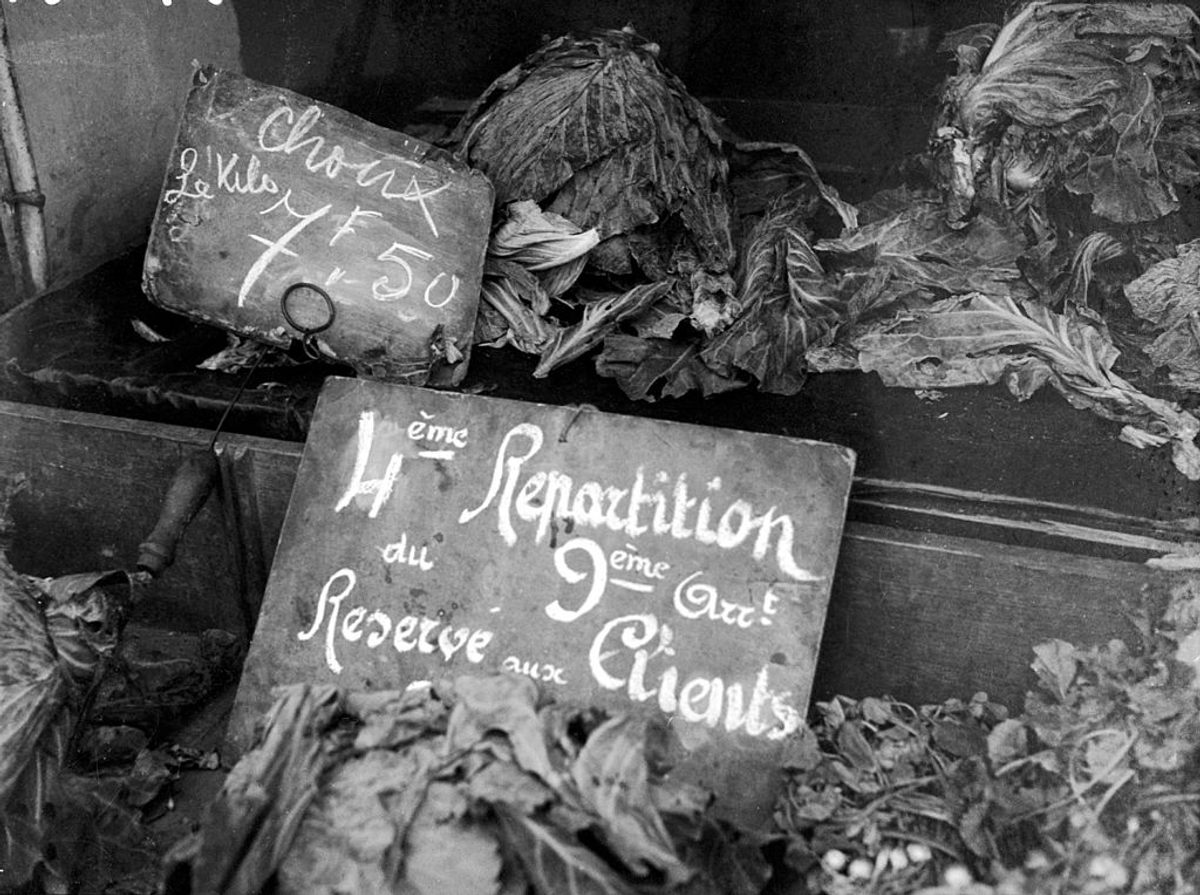 Choux
Le Kilo
7F.50
4ème Repartition
du 9ème Arrt
Reservé aux Clients